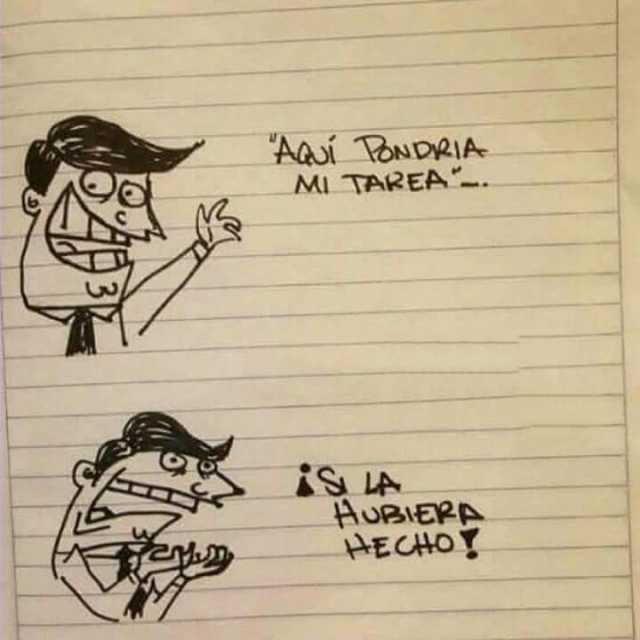 "AQUÍ PONDRIA
MI TAREA"...
¡SI LA
HUBIERA
HECHO!